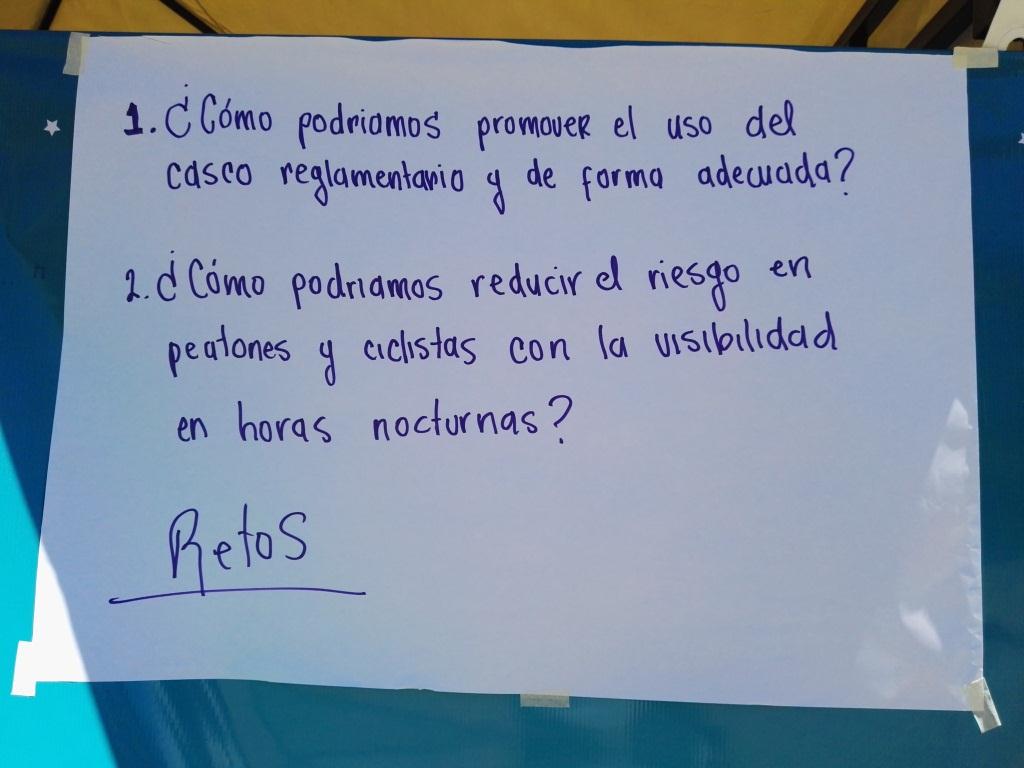 1. ¿Cómo podriamos promover el uso del
casco reglamentario y de forma adecuada?
2. ¿Cómo podriamos reducir el riesgo en
peatones y ciclistas con la visibilidad
en horas nocturnas?
Retos